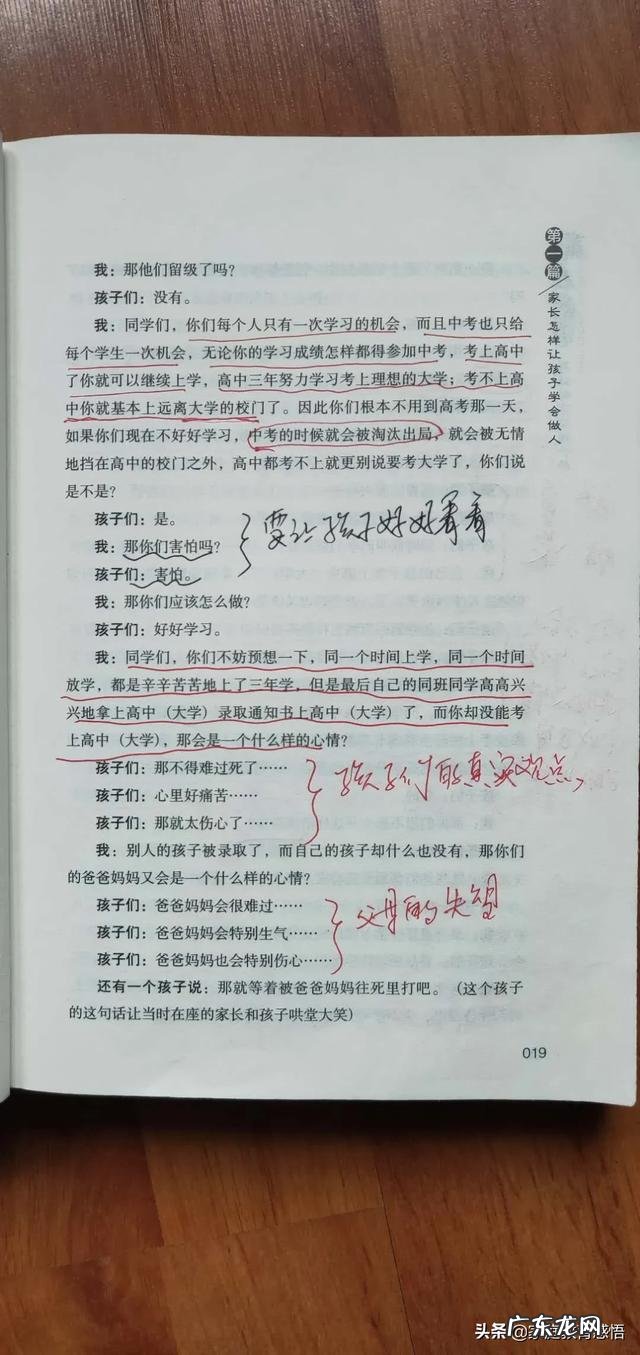 第一篇 家长怎样让孩子学会做人
我：那他们留级了吗？
孩子们：没有。
我：同学们，你们每个人只有一次学习的机会，而且中考也只给
每个学生一次机会，无论你的学习成绩怎样都得参加中考，考上高中
了你就可以继续上学，高中三年努力学习考上理想的大学；考不上高
中你就基本上远离大学的校门了。因此你们根本不用到高考那一天，
如果你们现在不好好学习，中考的时候就会被淘汰出局，就会被无情
地挡在高中的校门之外，高中都考不上就更别说要考大学了，你们说
是不是？
孩子们：是。
我：那你们害怕吗？
孩子们：害怕。
要让孩子好好看看
我：那你们应该怎么做？
孩子们：好好学习。
我：同学们，你们不妨预想一下，同一个时间上学，同一个时间
放学，都是辛辛苦苦地上了三年学，但是最后自己的同班同学高高兴
兴地拿上高中（大学）录取通知书上高中（大学）了，而你却没能考
上高中（大学），那会是一个什么样的心情？
孩子们：那不得难过死了……
孩子们：心里好痛苦……
孩子们：那就太伤心了……
孩子们的真实观点，
我：别人的孩子被录取了，而自己的孩子却什么也没有，那你们
的爸爸妈妈又会是一个什么样的心情？
孩子们：爸爸妈妈会很难过……
孩子们：爸爸妈妈会特别生气……
孩子们：爸爸妈妈也会特别伤心……
父母的失望
还有一个孩子说：那就等着被爸爸妈妈往死里打吧。（这个孩子
的这句话让当时在座的家长和孩子哄堂大笑）
019
头条@家庭教育感悟
广东龙网